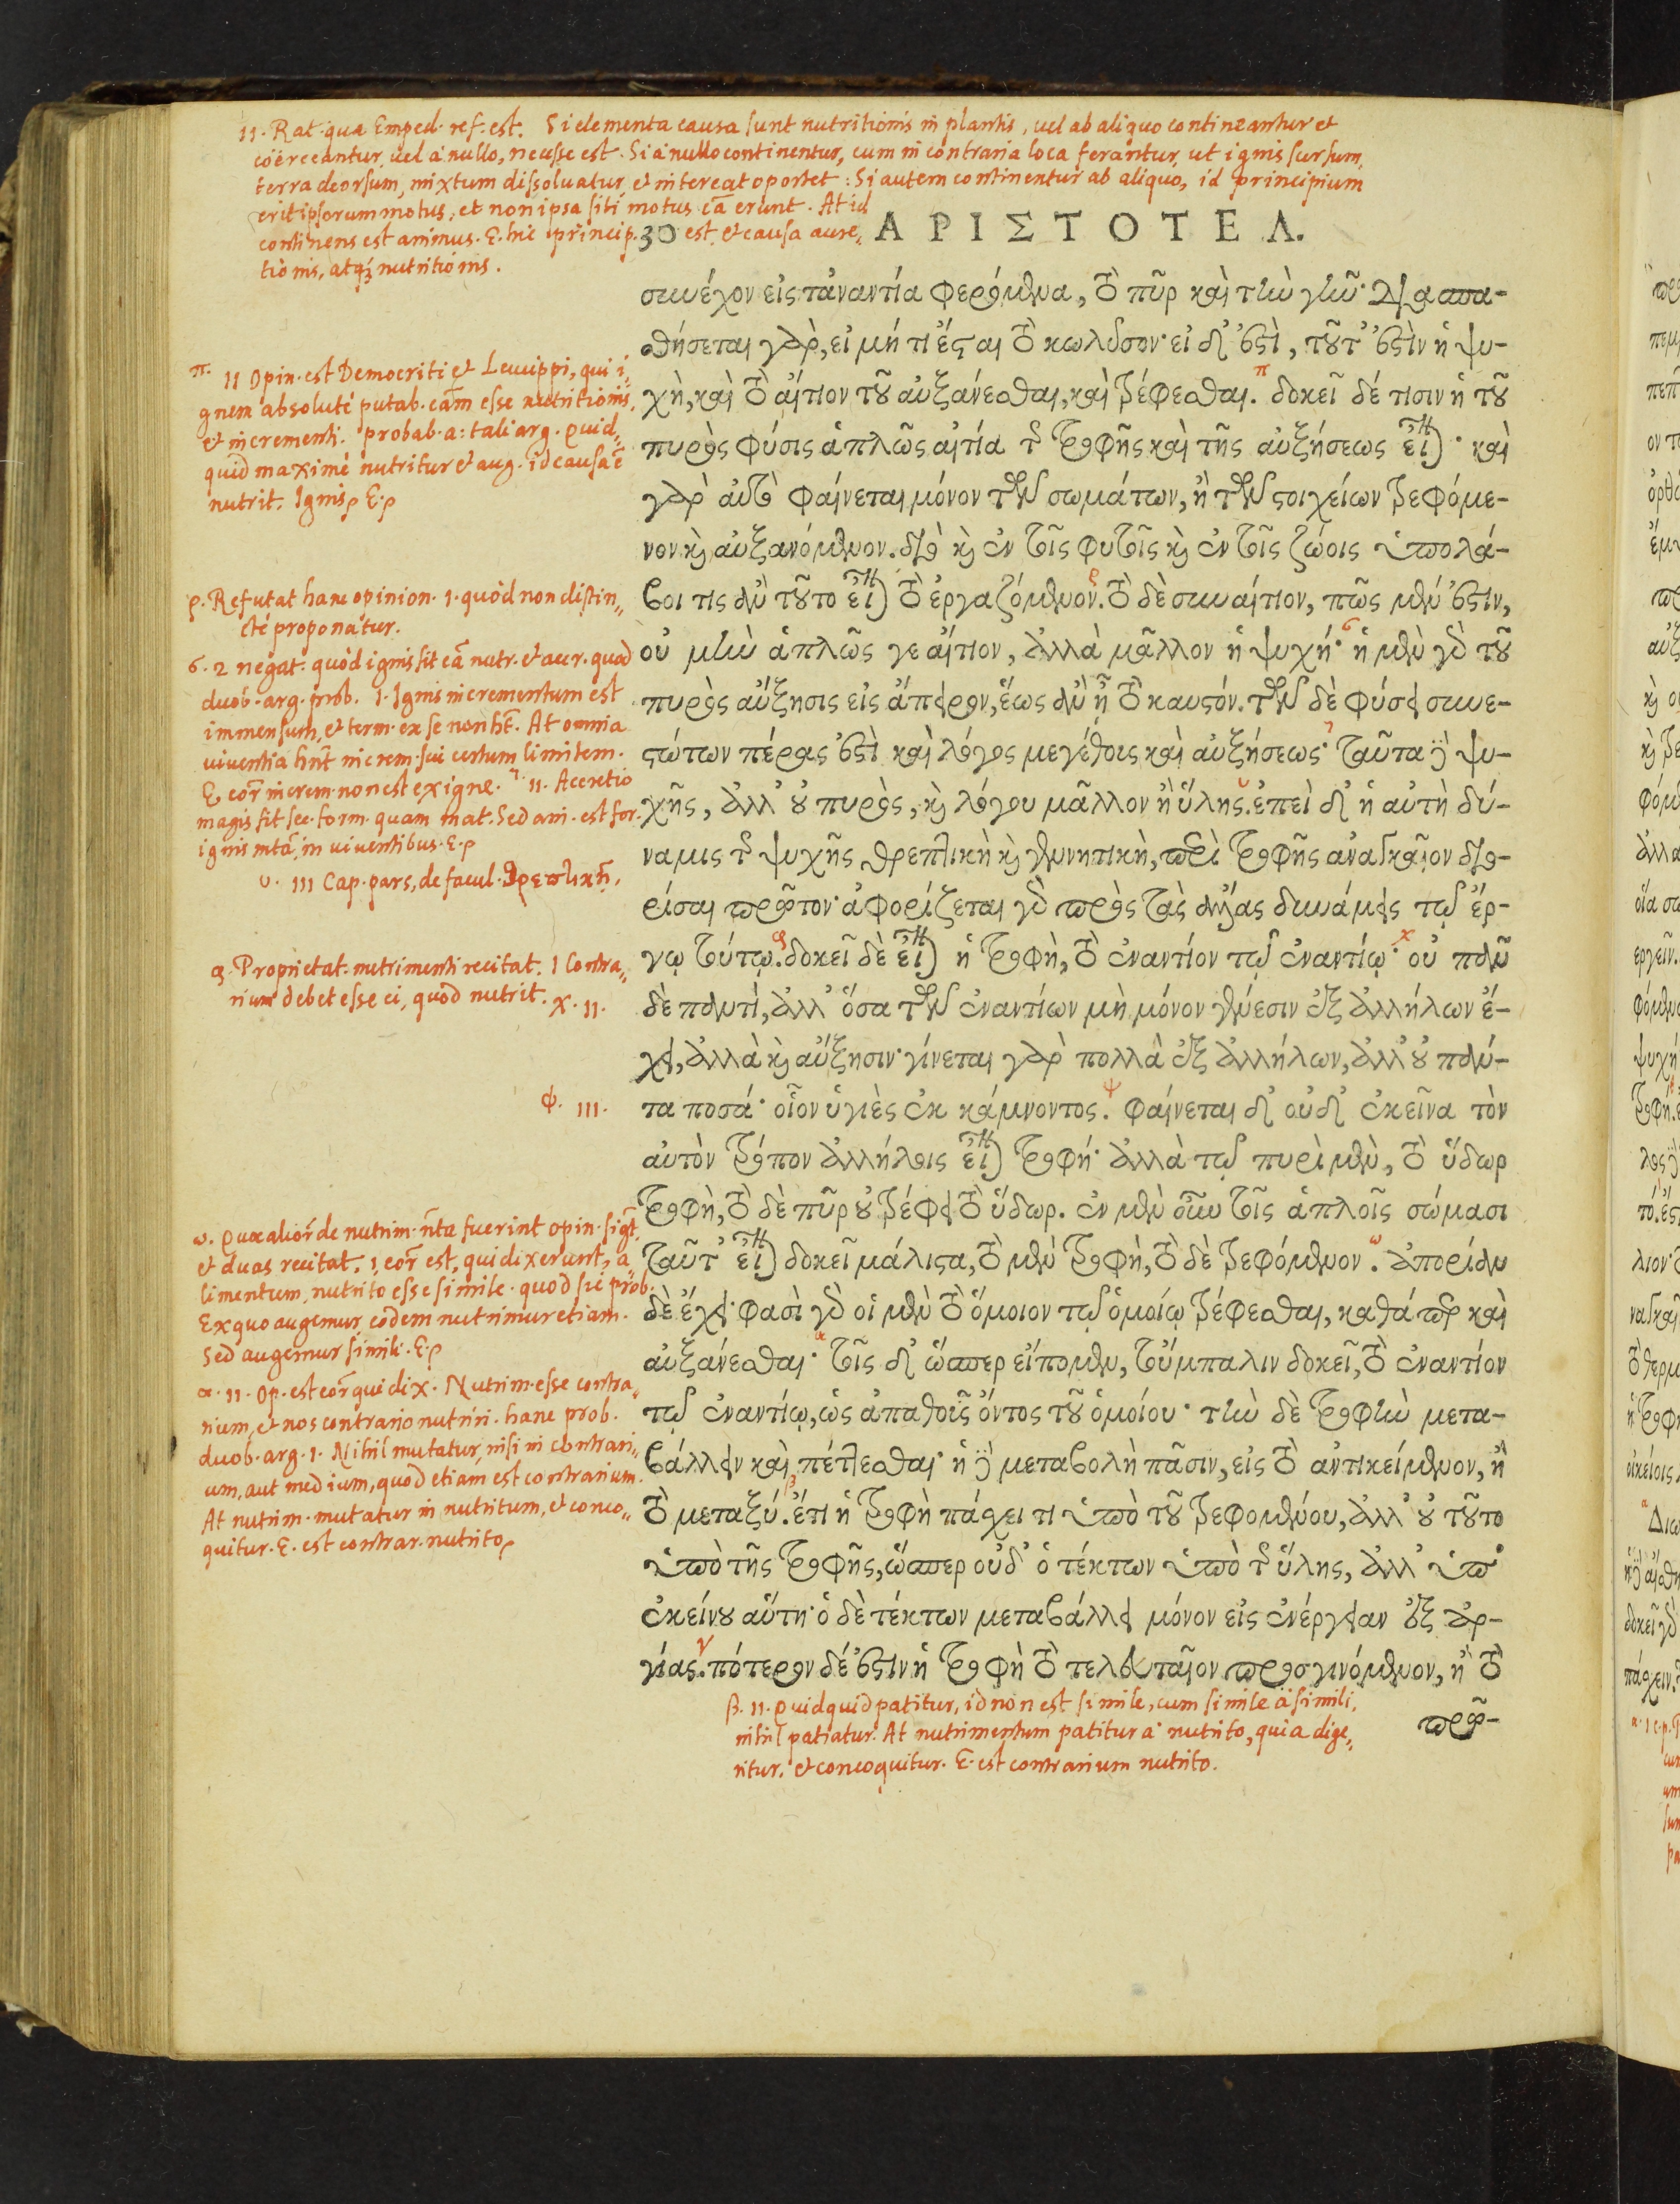 11. Rat. qua Emped. ref. est. Si elementa causa sunt nutritionis in plantis, uel ab aliquo contineantur et
coërceantur, uel à nullo, necesse est. Si à nullo continentur, cum in contraria loca ferantur, ut ignis sursum,
terra deorsum, mixtum dissoluatur, et intereat oportet: Si autem continentur ab aliquo, id principium
erit ipsorum motus, et non ipsa sibi motus cā erunt. At id
continens est animus. E. hic princip. est, et causa accre„
tionis, atq; nutritionis.
30 ΑΡΙΣΤΟΤΕΛ.
συνέχον εἰς τἀναντία φερόμενα, τὸ πῦρ καὶ τὴν γῆν· διασπα-
σθήσεται γὰρ, εἰ μή τι ἔσται τὸ κωλύσον· εἰ δ' ἐστὶ, τοῦτ' ἐστὶν ἡ ψυ-
χὴ, καὶ τὸ αἴτιον τοῦ αὐξάνεσθαι, καὶ τρέφεσθαι. π δοκεῖ δέ τισιν ἡ τοῦ
πυρὸς φύσις ἁπλῶς αἰτία τῆς τροφῆς καὶ τῆς αὐξήσεως εἶναι· καὶ
γὰρ αὐτὸ φαίνεται μόνον τῶν σωμάτων, ἢ τῶν στοιχείων τρεφόμε-
νον καὶ αὐξανόμενον. διὸ καὶ ἐν τοῖς φυτοῖς καὶ ἐν τοῖς ζώοις ὑπολά-
βοι τις ἂν τοῦτο εἶναι τὸ ἐργαζόμενον. ρ τὸ δὲ συναίτιον, πῶς μέν ἐστιν,
οὐ μὴν ἁπλῶς γε αἴτιον, ἀλλὰ μᾶλλον ἡ ψυχή· σ ἡ μὲν γὰρ τοῦ
πυρὸς αὔξησις εἰς ἄπειρον, ἕως ἂν ᾖ τὸ καυστόν. τῶν δὲ φύσει συνε-
στώτων πέρας ἐστὶ καὶ λόγος μεγέθους καὶ αὐξήσεως· τ ταῦτα δὲ ψυ-
χῆς, ἀλλ' οὐ πυρὸς, καὶ λόγου μᾶλλον ἢ ὕλης. υ ἐπεὶ δ' ἡ αὐτὴ δύ-
ναμις τῆς ψυχῆς θρεπτικὴ καὶ γεννητικὴ, περὶ τροφῆς ἀναγκαῖον διο-
ρίσαι πρῶτον· ἀφορίζεται γὰρ πρὸς τὰς ἄλλας δυνάμεις τῷ ἔρ-
γῳ τούτῳ. φ δοκεῖ δὲ εἶναι ἡ τροφὴ, τὸ ἐναντίον τῷ ἐναντίῳ· χ οὐ πᾶν
δὲ παντὶ, ἀλλ' ὅσα τῶν ἐναντίων μὴ μόνον γένεσιν ἐξ ἀλλήλων ἔ-
χει, ἀλλὰ καὶ αὔξησιν· γίνεται γὰρ πολλὰ ἐξ ἀλλήλων, ἀλλ' οὐ πάν-
τα ποσά· οἷον ὑγιὲς ἐκ κάμνοντος. ψ φαίνεται δ' οὐδ' ἐκεῖνα τὸν
αὐτὸν τρόπον ἀλλήλοις εἶναι τροφή· ἀλλὰ τῷ πυρὶ μὲν, τὸ ὕδωρ
τροφὴ, τὸ δὲ πῦρ οὐ τρέφει τὸ ὕδωρ. ἐν μὲν οὖν τοῖς ἁπλοῖς σώμασι
ταῦτ' εἶναι δοκεῖ μάλιστα, τὸ μὲν τροφὴ, τὸ δὲ τρεφόμενον. ω ἀπορίαν
δὲ ἔχει· φασὶ γὰρ οἱ μὲν τὸ ὅμοιον τῷ ὁμοίῳ τρέφεσθαι, καθάπερ καὶ
αὐξάνεσθαι· α τοῖς δ' ὥσπερ εἴπομεν, τοὔμπαλιν δοκεῖ, τὸ ἐναντίον
τῷ ἐναντίῳ, ὡς ἀπαθοῦς ὄντος τοῦ ὁμοίου· τὴν δὲ τροφὴν μετα-
βάλλειν καὶ πέττεσθαι· ἡ δὲ μεταβολὴ πᾶσιν, εἰς τὸ ἀντικείμενον, ἢ
τὸ μεταξύ. β ἔτι ἡ τροφὴ πάσχει τι ὑπὸ τοῦ τρεφομένου, ἀλλ' οὐ τοῦτο
ὑπὸ τῆς τροφῆς, ὥσπερ οὐδ' ὁ τέκτων ὑπὸ τῆς ὕλης, ἀλλ' ὑπ'
ἐκείνου αὕτη· ὁ δὲ τέκτων μεταβάλλει μόνον εἰς ἐνέργειαν ἐξ ἀρ-
γίας. γ πότερον δέ ἐστιν ἡ τροφὴ τὸ τελευταῖον προσγινόμενον, ἢ τὸ
πρῶ-
π. 11 Opin. est Democriti et Leucippi, qui i„
gnem absolutè putab. cām esse nutritionis,
et incrementi. probab. a: tali arg. Quid„
quid maximè nutritur et aug. id causa ē
nutrit. Ignis, E.
ρ. Refutat hanc opinion. 1. quòd non distin„
ctè proponatur.
σ. 2 negat: quòd ignis sit cā nutr. et accr. quod
duob. arg. prob. 1. Ignis incrementum est
immensum, et term. ex se non hēt. At omnia
uiuentia hn̄t increm. sui certum limitem.
E. eor̄ increm. non est ex igne. τ. 11. Accretio
magis fit sec. form. quam mat. Sed ani. est for.
ignis mtā, in uiuentibus. E.
υ. 111 Cap. pars, de facul. θρεπτικῇ.
φ. Proprietat. nutrimenti recitat. 1 Contra„
rium debet esse ei, quod nutrit. χ. 11.
ψ. 111.
ω. Quae alior̄ de nutrim. nta fuerint opin. sigt,
et duas recitat. 1. eor̄ est, qui dixerunt, a„
limentum, nutrito esse simile. quod sic prob.
Ex quo augemur, eodem nutrimur etiam.
Sed augemur simili. E.
α. 11. Op. est eor̄ qui dix. Nutrim. esse contra„
rium, et nos contrario nutriri. hanc prob.
duob. arg. 1. Nihil mutatur, nisi in contrari„
um, aut medium, quod etiam est contrarium.
At nutrim. mutatur in nutritum, et conco„
quitur. E. est contrar. nutrito.
β. 11. Quidquid patitur, id non est simile, cum simile à simili,
nihil patiatur. At nutrimentum patitur à nutrito, quia dige„
ritur, et concoquitur. E. est contrarium nutrito.